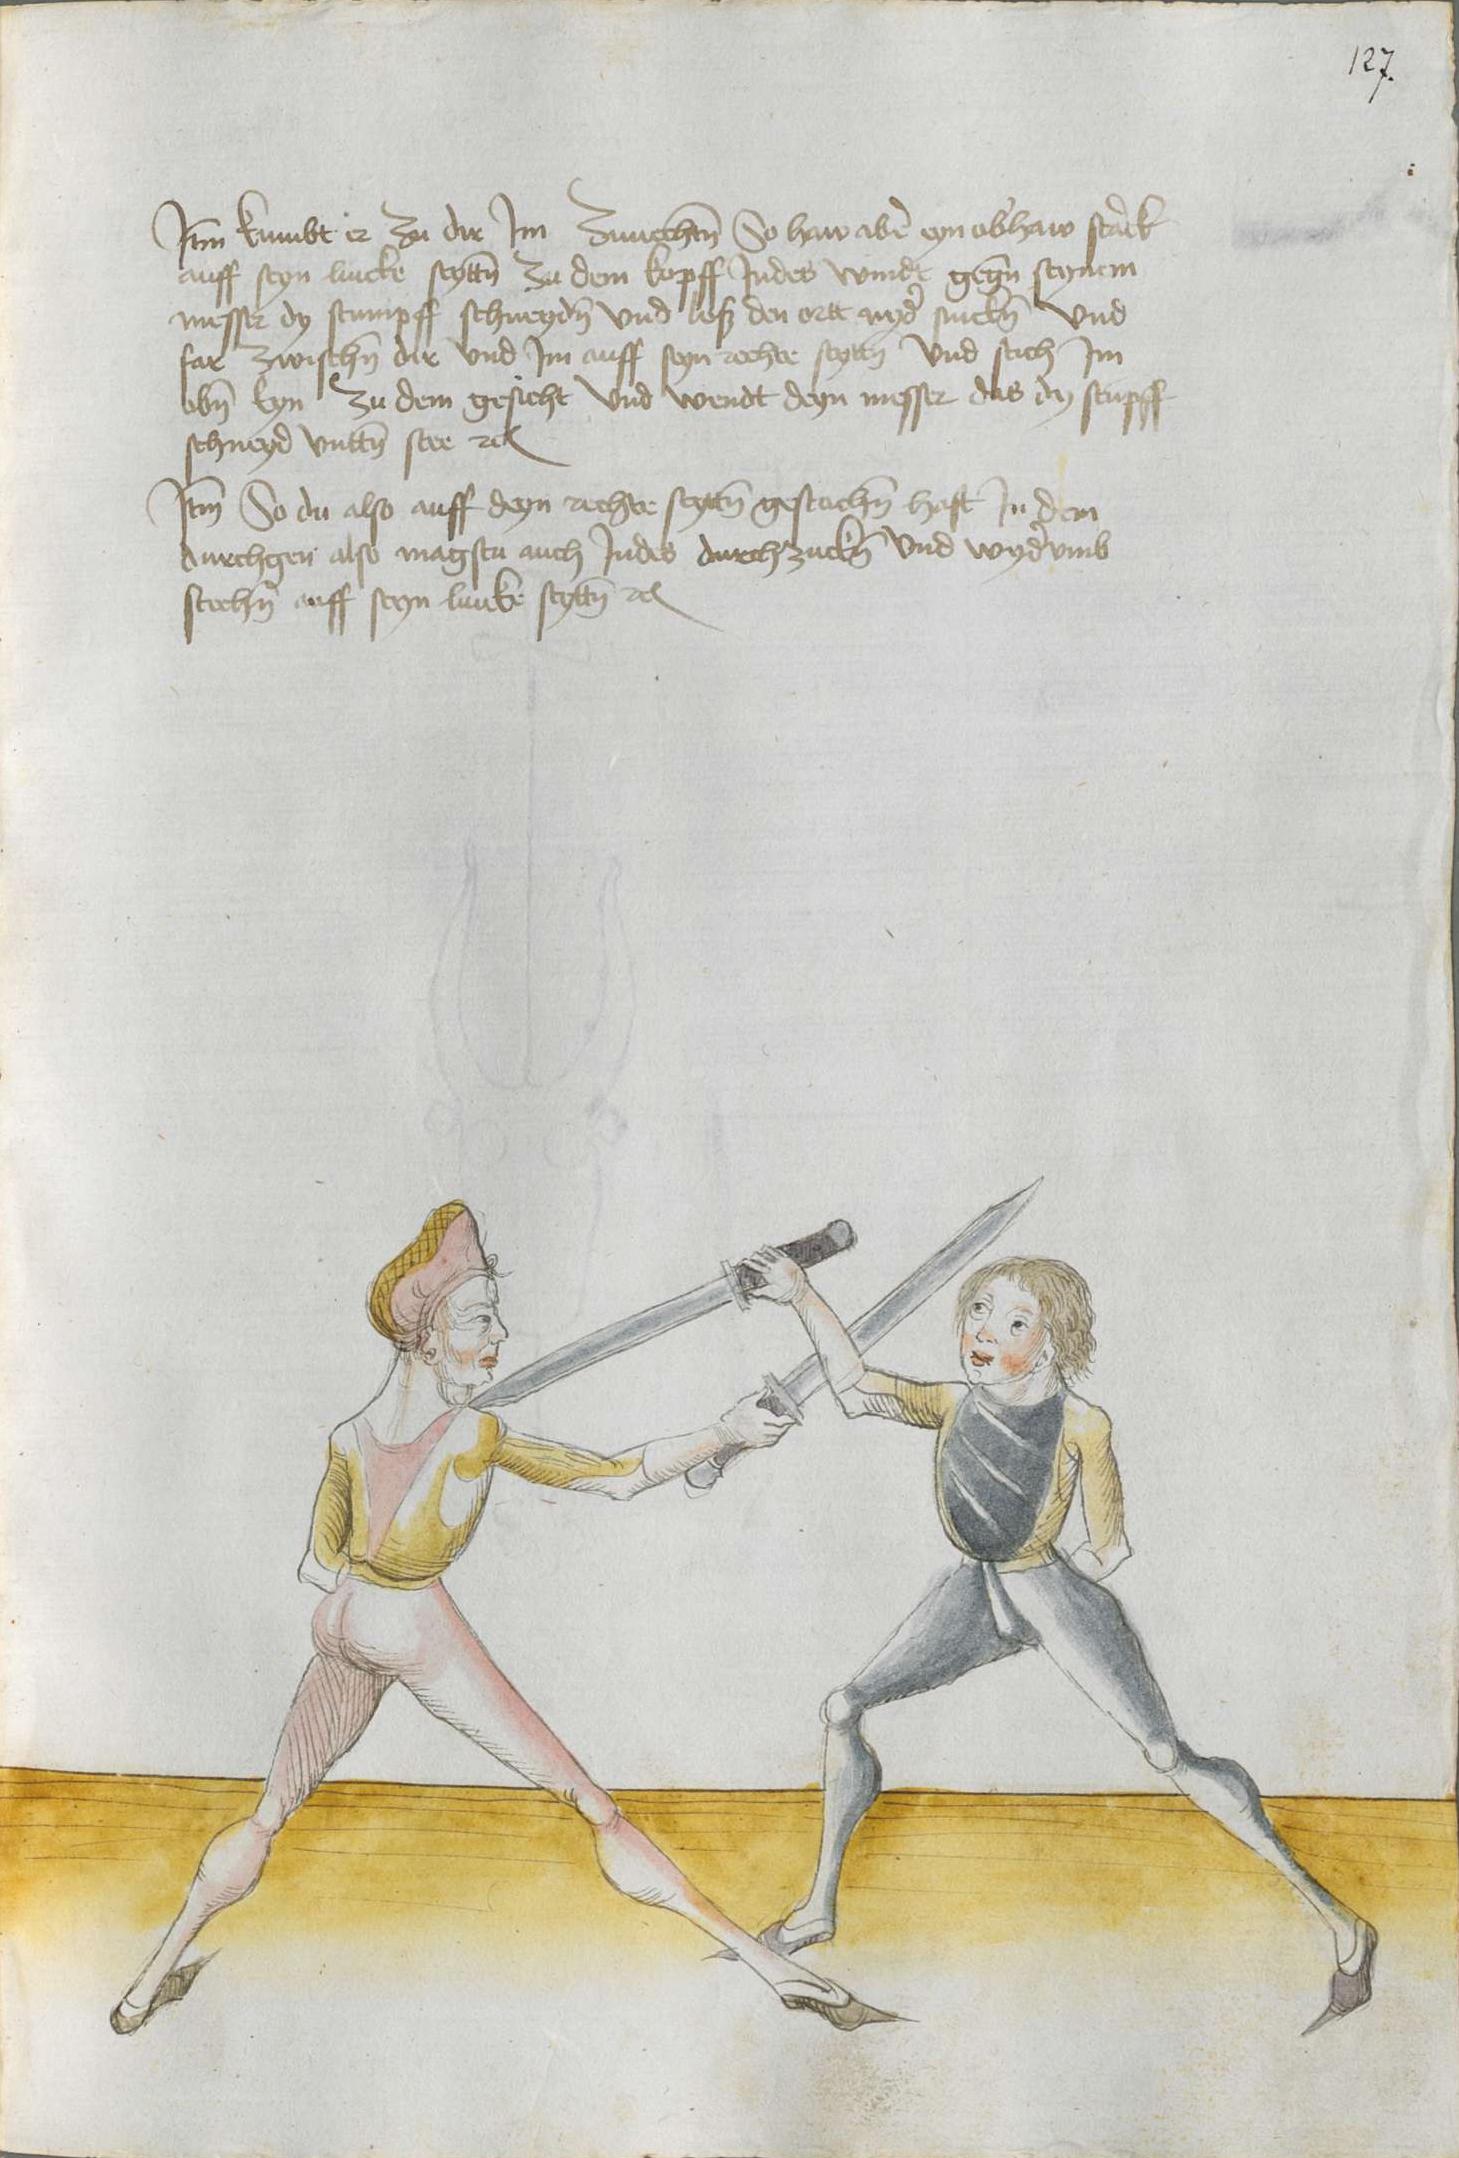 127.
Itm̄ kumbt er Zu dir Im Zuvechtn̄ So haw abē eyn obhaw starck
auff seyn lincke seyttn̄ Zu dem kopff Indes windt gegn̄ seynem
messer dy stumpff schneydn̄ vnd loß den ortt nyd̄ sinckn̄ vnd
far zwischn̄ dir vnd Im auff seyn rechte seyttn̄ vnd stich Im
obn̄ eyn Zu dem gesicht vnd wendt deyn messer das dy stūpff
schneyd vnttn̄ stee rc
Itm̄ So du also auff deyn rechte seyttn̄ gestochn̄ hast In dem
durchgen also magstu auch Indes durchzuckn̄ vnd wyd̄vmb
stechn̄ auff seyn lincke seyttn̄ rc